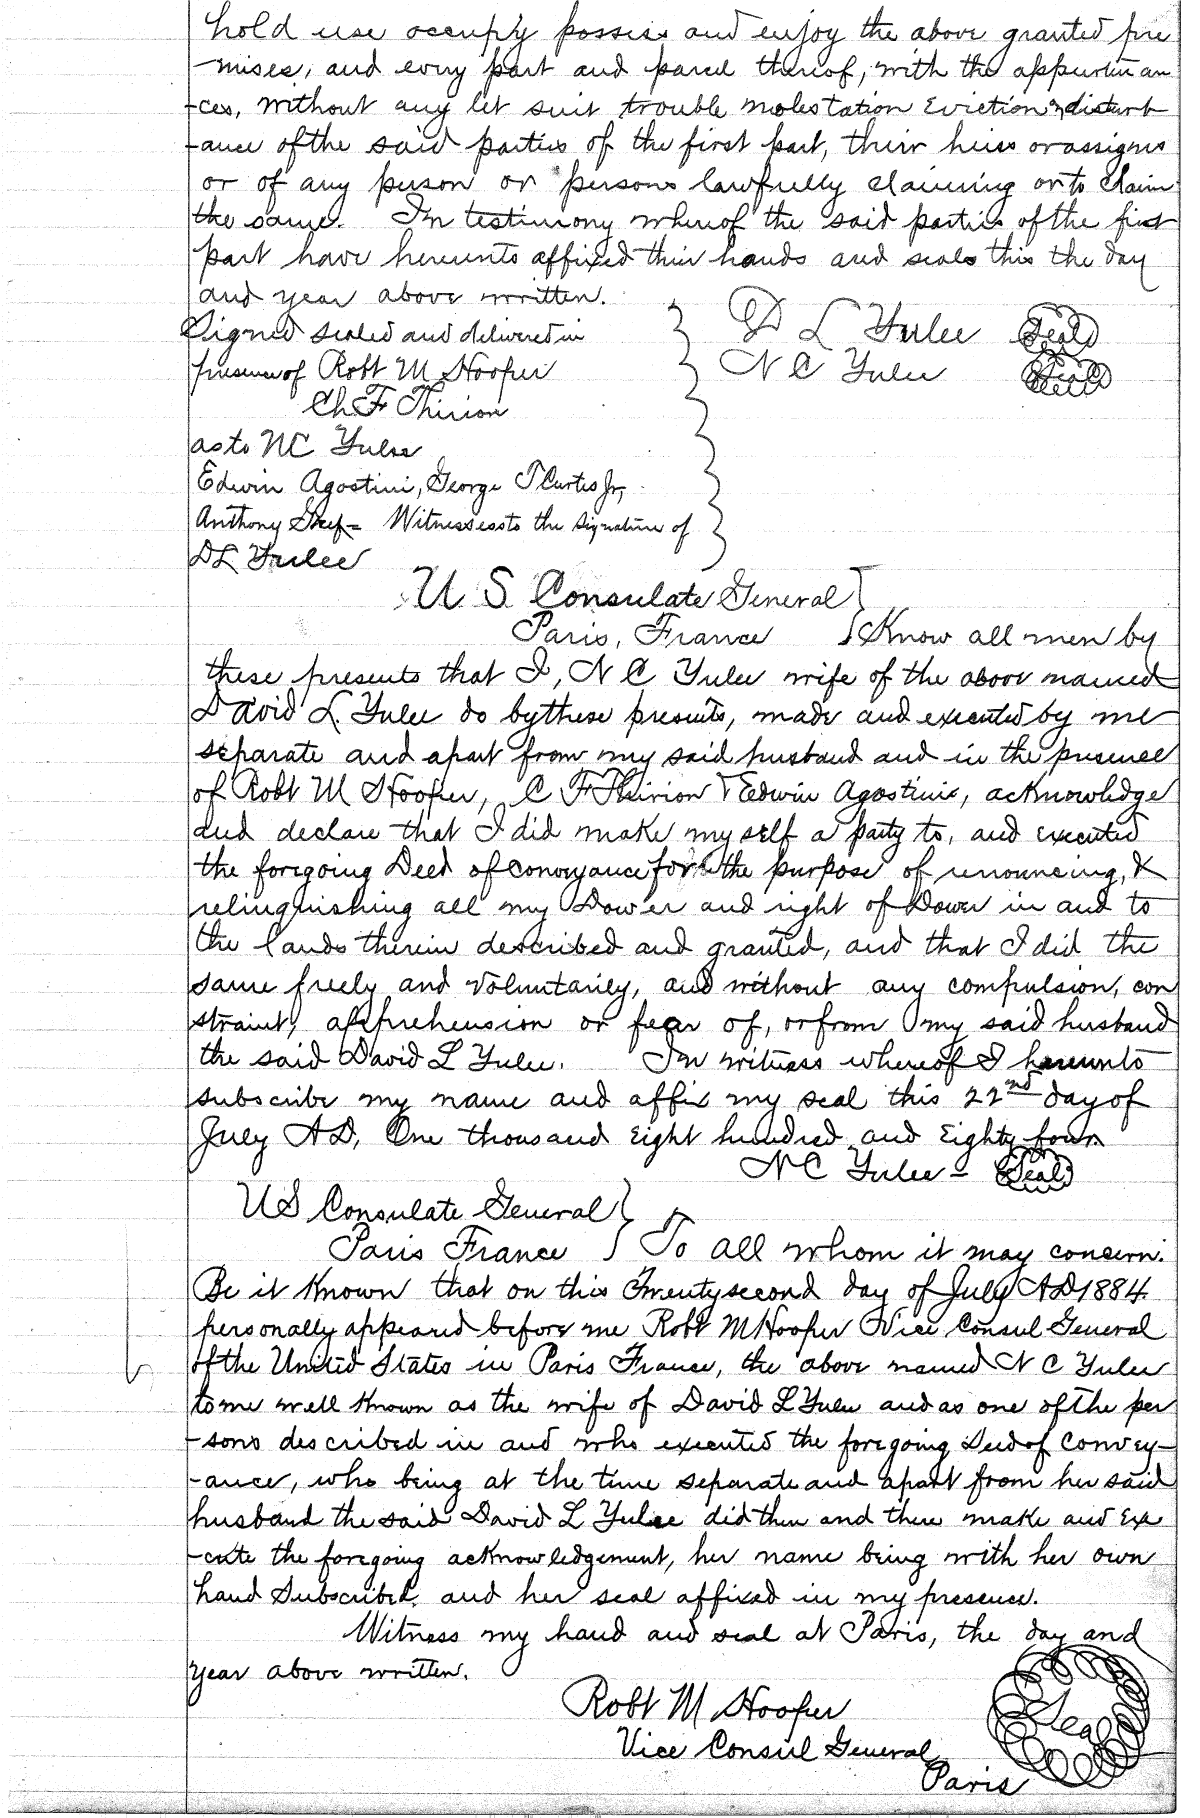 hold use occupy possess and enjoy the above granted pre
-mises, and every part and parcel thereof, with the appurtenan
-ces, without any let suit trouble molestation Eviction & disturb
-ance of the said parties of the first part, their heirs or assigns
or of any person or persons lawfully claiming or to claim
the same. In testimony whereof the said parties of the first
part have hereunto affixed their hands and seals this the day
and year above written.
Signed sealed and delivered in
presence of Robt M Hooper
Ch. F Thirion
as to NC Yulee
Edwin Agostini, George T Curtis Jr,
Anthony = Witnesses to the signature of
DL Yulee
D L Yulee Seal
N C Yulee Seal
U. S. Consulate General
Paris, France Know all men by
these presents that I, N C Yulee wife of the above named
David L. Yulee do by these presents, made and executed by me
separate and apart from my said husband and in the presence
of Robt M Hooper, C F Thirion & Edwin Agostini, acknowledge
and declare that I did make myself a party to, and executed
the foregoing Deed of conveyance for the purpose of renouncing, &
relinquishing all my Dower and right of Dower in and to
the lands therein described and granted, and that I did the
same freely and voluntarily, and without any compulsion, con
straint, apprehension or fear of, or from my said husband
the said David L Yulee. In witness whereof I hereunto
subscribe my name and affix my seal this 22nd day of
July AD, One thousand Eight hundred and Eighty four
N C Yulee - Seal
US Consulate General
Paris France To all whom it may concern.
Be it Known that on this Twenty second day of July AD 1884
personally appeared before me Robt M Hooper Vice Consul General
of the United States in Paris France, the above named N C Yulee
to me well known as the wife of David L Yulee and as one of the per
-sons described in and who executed the foregoing Deed of Convey-
-ance, who being at the time separate and apart from her said
husband the said David L Yulee did then and there make and Exe
-cute the foregoing acknowledgement, her name being with her own
hand Subscribed, and her seal affixed in my presence.
Witness my hand and seal at Paris, the day and
year above written.
Robt M Hooper
Vice Consul General
Paris
Seal